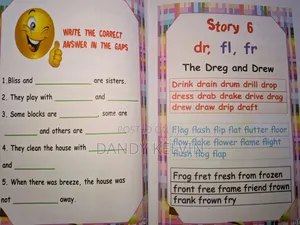 WRITE THE CORRECT
ANSWER IN THE GAPS
1.Bliss and __________ are sisters.
2. They play with ________ and ________
3. Some blocks are ________, some are
________ and others are ________
4. They clean the house with ________
and ________
5. When there was breeze, the house was
not ________ away.
Story 6
dr, fl, fr
The Dreg and Drew
Drink drain drum drill drop
dress drab drake drive drag
drew draw drip draft
Flag flash flip flat flutter floor
flow flake flower flame flight
flush flog flap
Frog fret fresh from frozen
front free frame friend frown
frank frown fry
POSTED BY
DANDY KELVIN